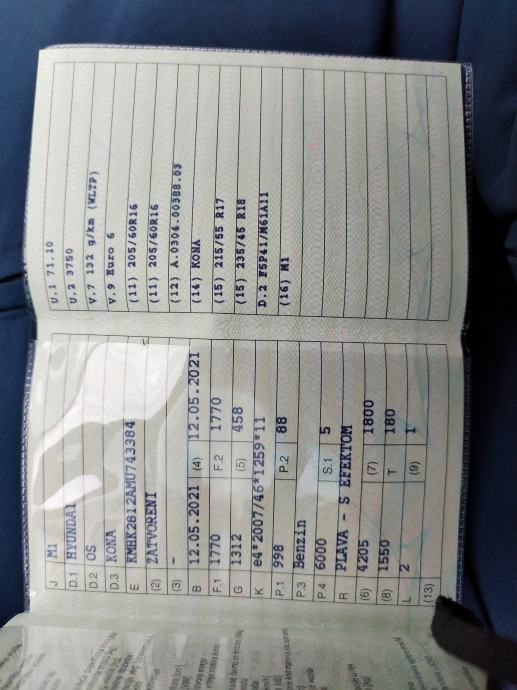 J M1
D.1 HYUNDAI
D.2 OS
D.3 KONA
E KMHK2812AMU743384
(2) ZATVORENI
(3) -
B 12.05.2021 (4) 12.05.2021
F.1 1770 F.2 1770
G 1312 (5) 458
K e4*2007/46*1259*11
P.1 998 P.2 88
P.3 Benzin
P.4 6000 S.1 5
R PLAVA - S EFEKTOM
(6) 4205 (7) 1800
(8) 1550 T 180
L 2 (9) 1
(13)
U.1 71.10
U.2 3750
V.7 132 g/km (WLTP)
V.9 Euro 6
(11) 205/60R16
(11) 205/60R16
(12) A.0304.00388.03
(14) KONA
(15) 215/55 R17
(15) 235/45 R18
D.2 F5P41/M61A11
(16) M1